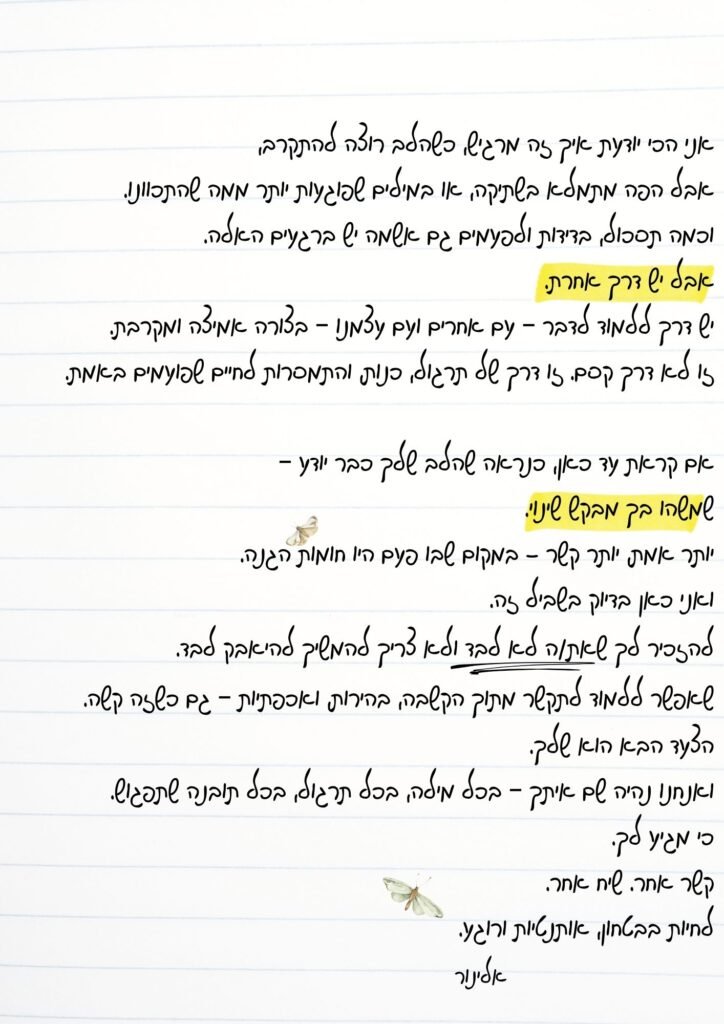 אני הכי יודעת איך זה מרגיש, כשהלב רוצה להתקרב,
אבל הפה מתמלא בשתיקה, או במילים שפוגעות יותר ממה שהתכוונו.
וכמה תסכול, בדידות ולפעמים גם אשמה יש ברגעים האלה.
אבל יש דרך אחרת.
יש דרך ללמוד לדבר – עם אחרים ועם עצמנו – בצורה אמיצה ומקרבת.
זו לא דרך קסם. זו דרך של תרגול, כנות, והתמסרות לחיים שפועמים באמת.
אם קראת עד כאן, כנראה שהלב שלך כבר יודע –
שמשהו בך מבקש שינוי.
יותר אמת, יותר קשר – במקום שבו פעם היו חומות הגנה.
ואני כאן בדיוק בשביל זה.
להזכיר לך שאת/ה לא לבד ולא צריך להמשיך להיאבק לבד.
שאפשר ללמוד לתקשר מתוך הקשבה, בהירות, ואכפתיות – גם כשזה קשה.
הצעד הבא הוא שלך.
ואנחנו נהיה שם איתך – בכל מילה, בכל תרגול, בכל תובנה שתפגוש.
כי מגיע לך.
קשר אחר. שיח אחר.
לחיות בבטחון, אותנטיות ורוגע.
אלינור